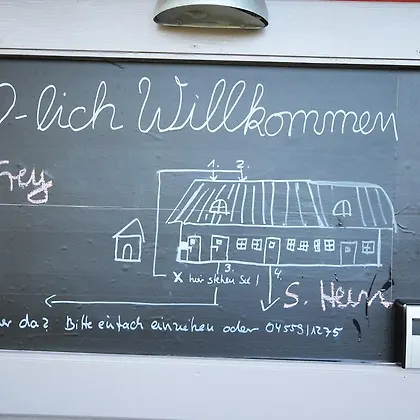 -lich Willkommen
Frey
1. 2.
3. 4.
X hier stehen Sie!
S. Hein
er da? Bitte einfach einziehen oder 04559/1275